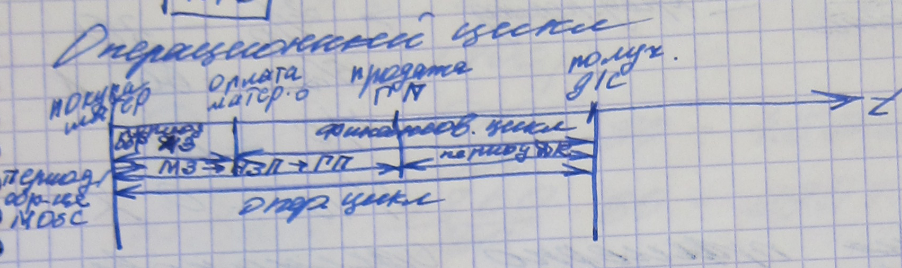 Операционный цикл
покупка матер
оплата матер-о
продажа ГП
получ. д/с
t
период КЗ
финансов. цикл
МЗ → НЗП → ГП
период ДК
период обр-ия МОбС
опер цикл